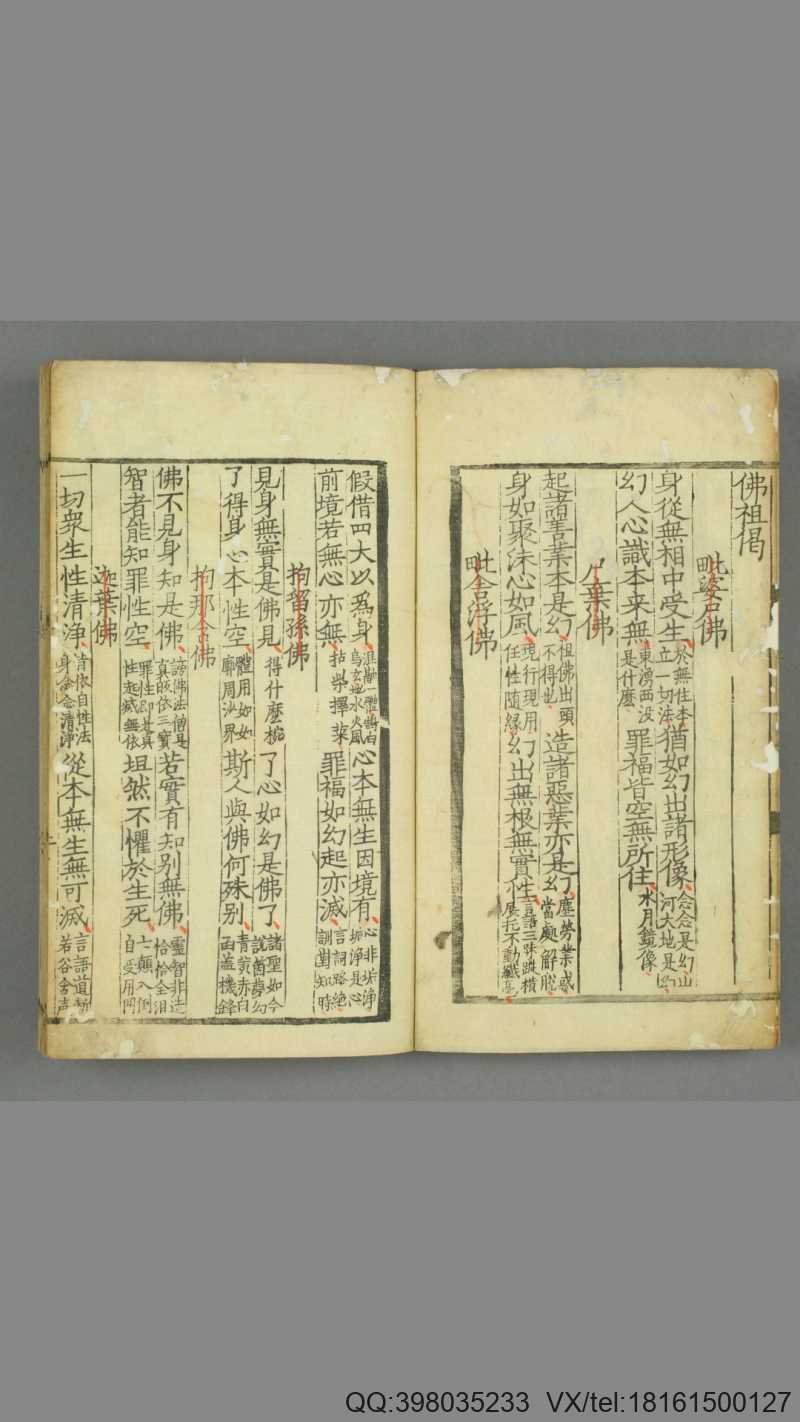 佛祖偈
毗婆尸佛
身從無相中受生 於無住本立一切法 猶如幻出諸形像 念念是幻山河大地是幻
幻人心識本来無 東湧西没是什麽 罪福皆空無所住 水月鏡像
尸棄佛
起諸善業本是幻 祖佛出頭不得也 造諸惡業亦是幻 塵勞業惑當處解脫
身如聚沫心如風 現行現用任性隨緣 幻出無根無實性 言語三昧縱橫展托不動纖毫
毗舍浮佛
假借四大以爲身 混融一體鷺白烏玄地水火風 心本無生因境有 心非垢淨垢淨是心
前境若無心亦無 拈柴擇菜 罪福如幻起亦滅 言詞路絶訓對知時
拘留孫佛
見身無實是佛見 得什麽椀 了心如幻是佛了 諸聖如今説茵夢幻
了得身心本性空 體用如如廓周沙界 斯人與佛何殊别 青黃赤白函蓋機鋒
拘那含佛
佛不見身知是佛 謗佛法僧是真皈依三寶 若實有知别無佛 靈智非造恰恰全泪
智者能知罪性空 罪性即是真性起滅無依 坦然不懼於生死 七顛八倒自受用門
迦葉佛
一切衆生性清淨 清依自性法身念念清淨 從本無生無可滅 言語道斷若谷含声
QQ:398035233 VX/tel:18161500127